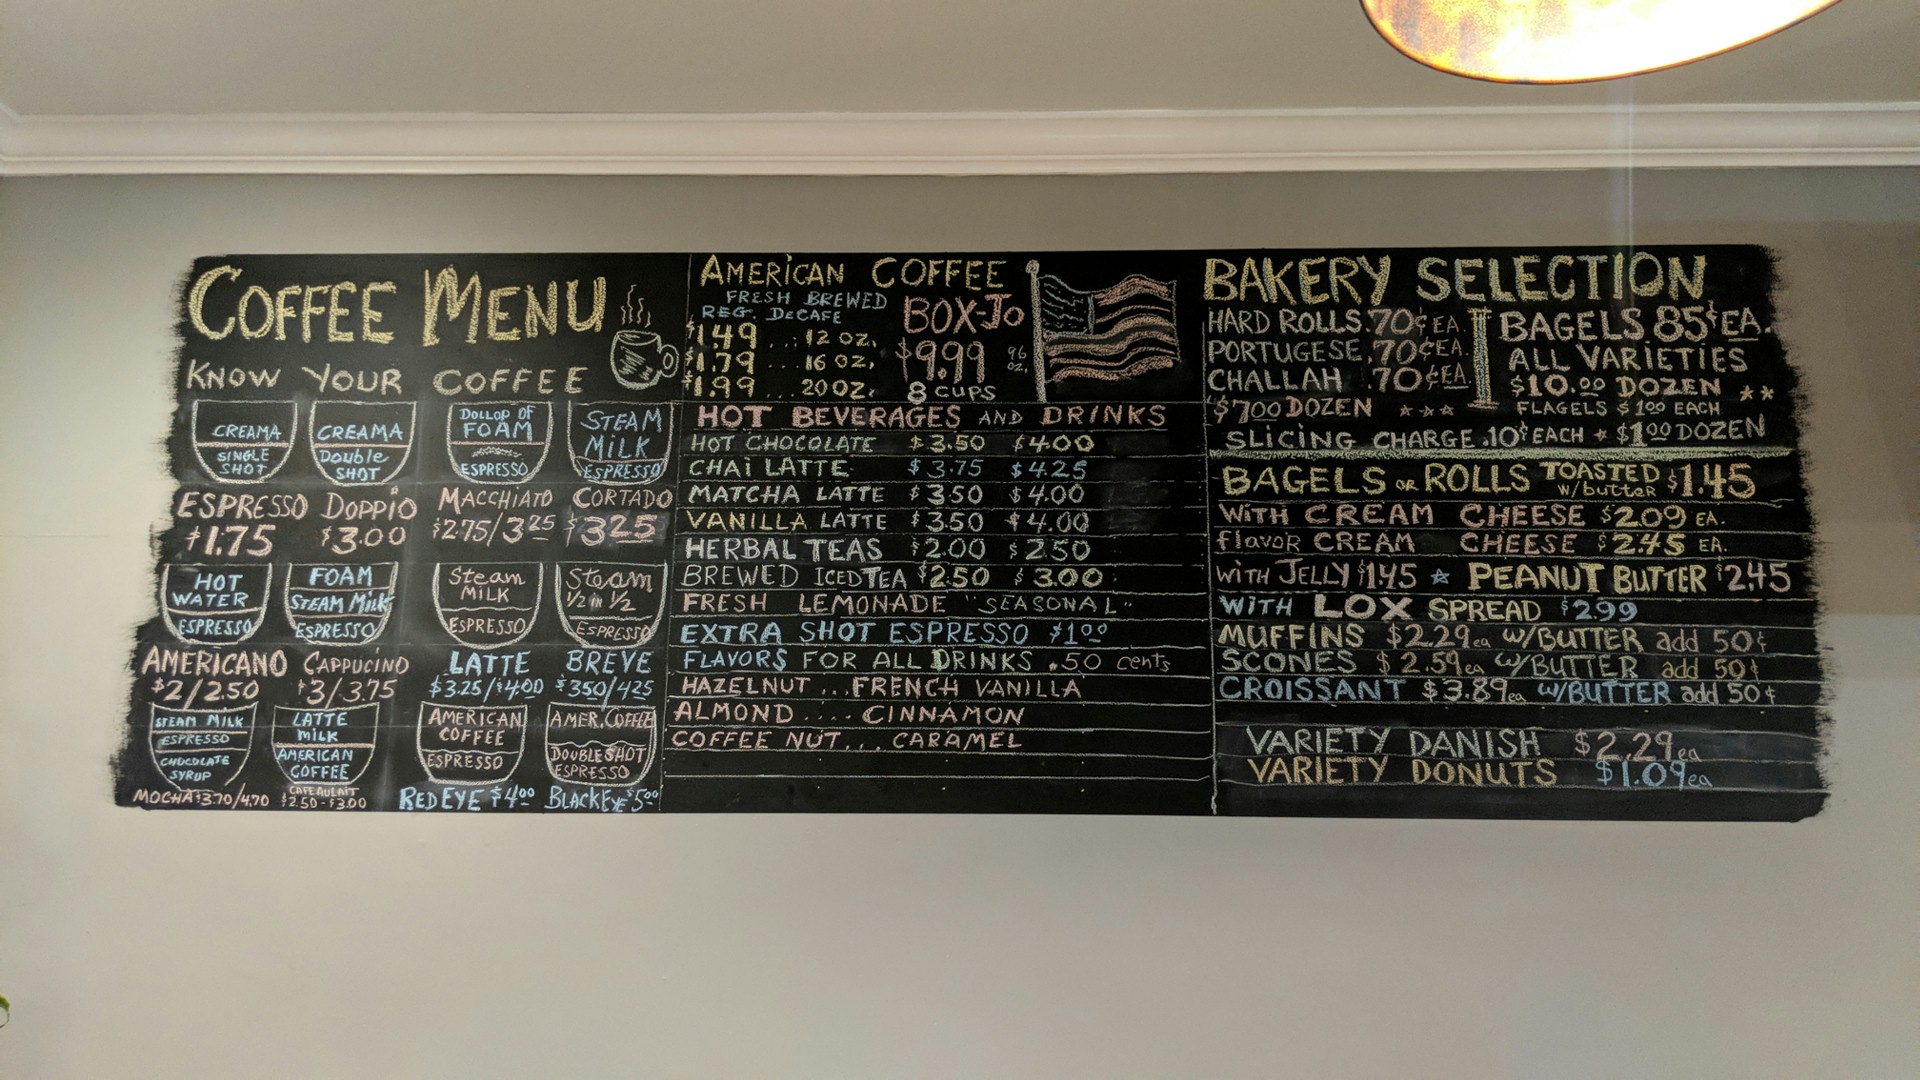 COFFEE MENU
KNOW YOUR COFFEE
CREAMA
SINGLE
SHOT
CREAMA
Double
SHOT
DOLLOP OF
FOAM
ESPRESSO
STEAM
MiLK
ESPRESSO
ESPRESSO DOPPiO MACCHiATO CORTADO
$1.75 $3.00 $2.75/3.25 $3.25
HOT
WATER
ESPRESSO
FOAM
STEAM MiLK
ESPRESSO
Steam
MILK
ESPRESSO
Steam
1/2 iN 1/2
ESPRESSO
AMERICANO CAPPUCINO LATTE BREVE
$2/2.50 $3/3.75 $3.25/$4.00 $3.50/4.25
STEAM MILK
ESPRESSO
CHOCOLATE
SYRUP
LATTE
MiLK
AMERICAN
COFFEE
AMERICAN
COFFEE
ESPRESSO
AMER. COFFEE
DOUBLE SHOT
ESPRESSO
MOCHA $3.70/4.70
CAFE AU LAIT
$2.50-$3.00
RED EYE $4.00 BLACK EYE $5.00
AMERiCAN COFFEE
FRESH BREWED
REG. DECAFE
$1.49 ...: 12 OZ.
$1.79 .... 16 OZ.
$1.99 .... 20 OZ.
BOX-JO
$9.99 96 OZ.
8 CUPS
HOT BEVERAGES AND DRINKS
HOT CHOCOLATE $3.50 $4.00
CHAi LATTE $3.75 $4.25
MATCHA LATTE $3.50 $4.00
VANILLA LATTE $3.50 $4.00
HERBAL TEAS $2.00 $2.50
BREWED ICED TEA $2.50 $3.00
FRESH LEMONADE "SEASONAL"
EXTRA SHOT ESPRESSO $1.00
FLAVORS FOR ALL DRINKS .50 cents
HAZELNUT ... FRENCH VANILLA
ALMOND .... CINNAMON
COFFEE NUT... CARAMEL
BAKERY SELECTION
HARD ROLLS .70¢ EA.
PORTUGESE .70¢ EA.
CHALLAH .70¢ EA.
$7.00 DOZEN ***
BAGELS 85¢ EA.
ALL VARIETIES
$10.00 DOZEN **
FLAGELS $1.00 EACH
SLICING CHARGE .10¢ EACH * $1.00 DOZEN
BAGELS OR ROLLS TOASTED w/butter $1.45
WiTH CREAM CHEESE $2.09 EA.
flavor CREAM CHEESE $2.45 EA.
WITH JELLY $1.45 ☆ PEANUT BUTTER $2.45
WiTH LOX SPREAD $2.99
MUFFINS $2.29ea W/BUTTER add 50¢
SCONES $2.59ea W/BUTTER add 50¢
CROISSANT $3.89ea W/BUTTER add 50¢
VARIETY DANISH $2.29ea
VARIETY DONUTS $1.09ea